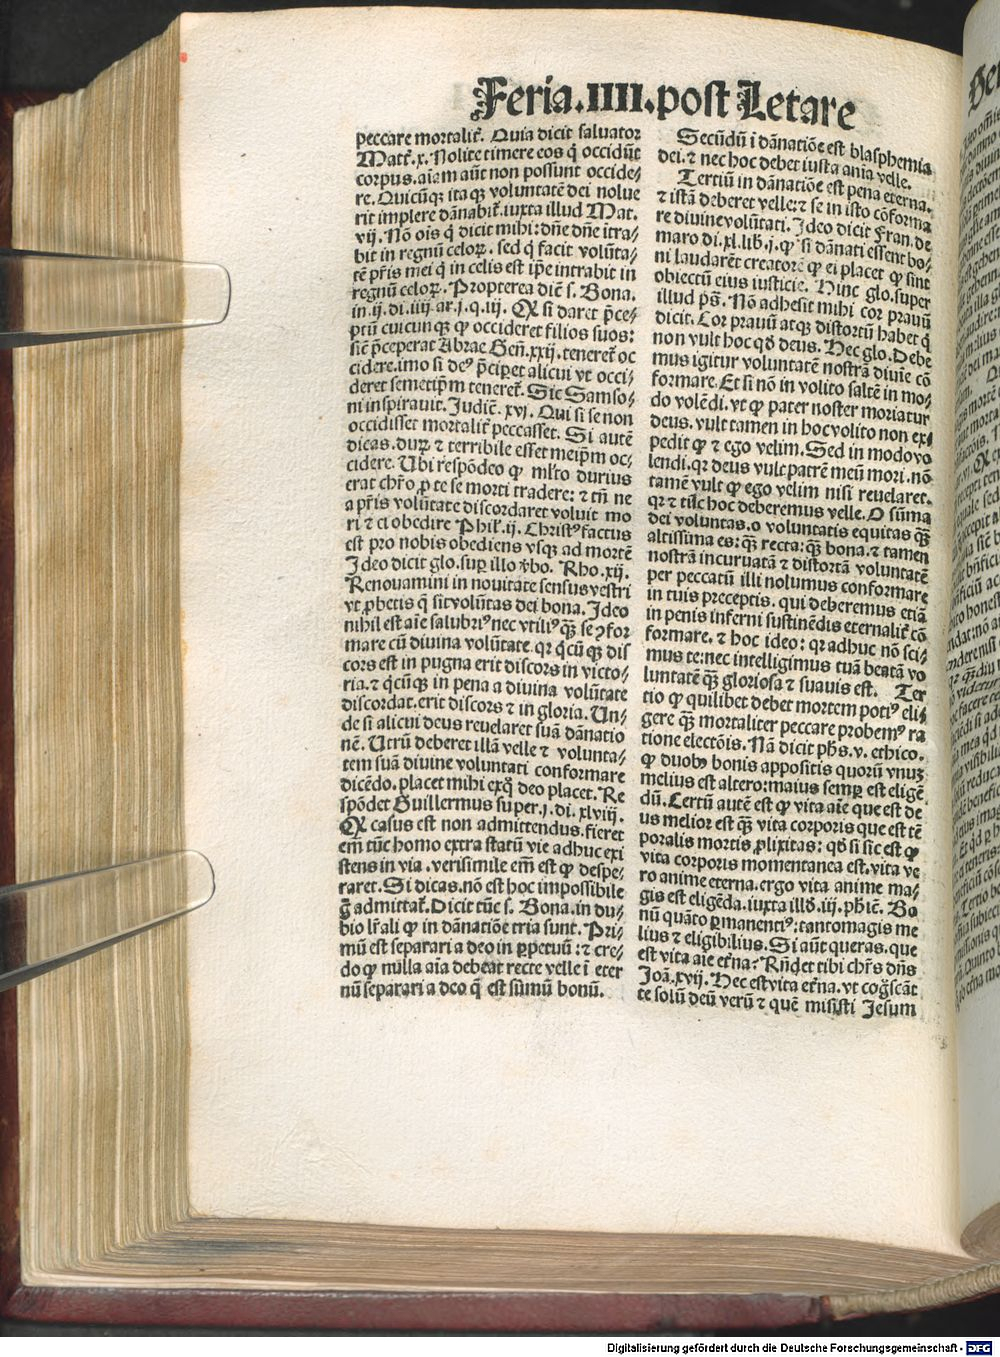 Feria.IIII.post Letare
peccare mortalit̃. Quia dicit saluator
Matt̃.x. Nolite timere eos q̇ occidũt
corpus.aĩam aũt non possunt occide/
re. Quicũqꝫ ita qꝫ voluntatẽ dei nolue
rit implere dãnabit̃.iuxta illud Mat.
vij. Nõ oĩs q̇ dicit mihi:dñe dñe itra/
bit in regnũ celoꝝ. sed q̇ facit volũta/
tẽ pr̃is mei q̇ in celis est ip̃e intrabit in
regnũ celoꝝ. Propterea dic̃ s. Bona.
in.ij.di.iiij.ar.j.q.iij. Ꝙ si daret p̃ce/
ptũ cuicunqꝫ ꝙ occideret filios suos:
sic̃ p̃ceperat Abrae Geñ.xxij.teneret̃ oc
cidere.imo si deꝰ p̃ciꝑet alicui vt occi/
deret semetip̃m teneret̃. Sic Samso/
ni inspirauit. Judic̃. xvj. Qui si se non
occidisset mortalit̃ peccasset. Si autẽ
dicas.duꝝ ⁊ terribile esset meip̃m oc/
cidere. Ubi respõdeo ꝙ ml̃to durius
erat chr̃o ꝓ te se morti tradere: ⁊ tñ ne
a pr̃is volũtate discordaret voluit mo
ri ⁊ ei obedire Phil̃.ij. Christꝰ factus
est pro nobis obediens vsqꝫ ad mortẽ
Ideo dicit glo.suꝑ illo ṽbo. Rho.xij.
Renouamini in nouitate sensus vestri
vt ꝓbetis q̃ sit volũtas dei bona. Ideo
nihil est aĩe salubriꝰ nec vtiliꝰ qꝫ̃ se ꝯfor
mare cũ diuina volũtate. qꝛ q̇cũqꝫ dis
cors est in pugna erit discors in victo/
ria.⁊ q̇cũqꝫ in pena a diuina volũtate
discordat.erit discors ⁊ in gloria. Un/
de si alicui deus reuelaret suã dãnatio
nẽ. Utrũ deberet illã velle ⁊ volunta/
tem suã diuine voluntati conformare
dicẽdo.placet mihi exq̊ deo placet. Re
spõdet Guillermus super.j.di.xlviij.
Ꝙ casus est non admittendus.fieret
em̃ tũc homo extra statũ vie adhuc exi
stens in via.verisimile em̃ est ꝙ despe/
raret. Si dicas.nõ est hoc impossibile
g̊ admittat̃. Dicit tũc s. Bona.in du/
bio lr̃ali ꝙ in dãnatiõe tria sunt. Pri/
mũ est separari a deo in ꝑpetuũ:⁊ cre/
do ꝙ nulla aĩa debeat recte velle ĩ eter
nũ separari a deo q̇ est sũmũ bonũ.
Secũdũ ĩ dãnatiõe est blasphemia
dei.⁊ nec hoc debet iusta aĩa velle.
Tertiũ in dãnatiõe est pena eterna.
⁊ istã deberet velle:⁊ se in isto cõforma
re diuine volũtati. Ideo dicit Fran.de
maro di.xl.lib̃.j.ꝙ si dãnati essent bo/
ni laudarẽt creatorẽ ꝙ ei placet ꝙ sint
obiectũ eius iusticie. Hinc glo.super
illud pṡ. Nõ adhesit mihi cor prauũ
dicit. Cor prauũ atqꝫ distortũ habet q̇
non vult hoc qḋ deus. Hec glo. Debe
mus igitur voluntatẽ nostrã diuĩe cõ
formare. Et si nõ in volito saltẽ in mo/
do volẽdi.vt ꝙ pater noster moriatur
deus.vult tamen in hoc volito non ex/
pedit ꝙ ⁊ ego velim. Sed in modo vo
lendi.qꝛ deus vult patrẽ meũ mori.nõ
tamẽ vult ꝙ ego velim nisi reuelaret.
qꝛ ⁊ tũc hoc deberemus velle. O sũma
dei voluntas.o voluntatis equitas qꝫ̃
altissima es: qꝫ̃ recta: qꝫ̃ bona.⁊ tamen
nostrã incuruatã ⁊ distortã voluntatẽ
per peccatũ illi nolumus conformare
in tuis preceptis.qui deberemus etiã
in penis inferni sustinẽdis eternalit̃ cõ
formare.⁊ hoc ideo: qꝛ adhuc nõ sci/
mus te:nec intelligimus tuã beatã vo
luntatẽ qꝫ̃ gloriosa ⁊ suauis est. Ter
tio ꝙ quilibet debet mortem potiꝰ eli/
gere qꝫ̃ mortaliter peccare probemꝰ ra
tione electõis. Nã dicit phs̃.v.ethico.
ꝙ duobꝰ bonis appositis quorũ vnuꝫ
melius est altero:maius semꝑ est eligẽ
dũ. Certũ autẽ est ꝙ vita aĩe que est de
us melior est qꝫ̃ vita corporis que est tẽ
poralis mortis ꝓlixitas: qḋ si sic est ꝙ
vita corporis momentanea est.vita ve
ro anime eterna.ergo vita anime ma/
gis est eligẽda.iuxta illḋ.iij.ph̃ic̃. Bo
nũ quãto ꝑmanentiꝰ:tanto magis me
lius ⁊ eligibilius. Si aũt queras.que
est vita aĩe et̃na? Rñdet tibi chr̃s dñs
Joã.xvij. Hec est vita et̃na.vt cog̃scãt
te solũ deũ verũ ⁊ quẽ misisti Jesum
Digitalisierung gefördert durch die Deutsche Forschungsgemeinschaft - DFG